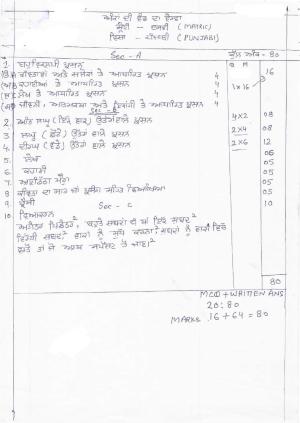 ਅੰਕਾਂ ਦੀ ਵੰਡ ਦਾ ਵੇਰਵਾ
ਸ਼੍ਰੇਣੀ - ਦਸਵੀਂ (MATRIC)
ਵਿਸ਼ਾ - ਪੰਜਾਬੀ (PUNJABI)
Sec - A ਕੁੱਲ ਅੰਕ - 80
1. ਬਹੁਵਿਕਲਪੀ ਪ੍ਰਸ਼ਨ Q M 16
ਕਵਿਤਾਵਾਂ ਅਤੇ ਤੇ ਆਧਾਰਿਤ ਪ੍ਰਸ਼ਨ 4
ਕਹਾਣੀਆਂ ਤੇ ਆਧਾਰਿਤ ਪ੍ਰਸ਼ਨ 4 1x16
ਲੇਖ ਤੇ ਆਧਾਰਿਤ ਪ੍ਰਸ਼ਨ 4
ਜੀਵਨੀ, ਅਤੇ ਇਕਾਂਗੀ ਤੇ ਆਧਾਰਿਤ ਪ੍ਰਸ਼ਨ 4
Sec - B
2. ਅਤਿ ਲਘੂ ਉੱਤਰਾਂ ਵਾਲੇ ਪ੍ਰਸ਼ਨ 4x2 08
3. ਲਘੂ (ਛੋਟੇ) ਉੱਤਰਾਂ ਵਾਲੇ ਪ੍ਰਸ਼ਨ 2x4 08
4. ਦੀਰਘ (ਵੱਡੇ) ਉੱਤਰਾਂ ਵਾਲੇ ਪ੍ਰਸ਼ਨ 2x6 12
5. ਲੇਖ 06
6. ਕਹਾਣੀ 05
7. ਅਣਡਿੱਠਾ ਪੈਰਾ 05
8. ਕਵਿਤਾ ਦਾ ਸਾਰ ਜਾਂ 05
9. ਚਿੱਠੀ 05
Sec - C
10. ਵਿਆਕਰਨ 10
ਅਗੇਤਰ ਪਿਛੇਤਰ², ਸ਼ਬਦਾਂ ਦੀ ਥਾਂ ਇੱਕ ਸ਼ਬਦ²
ਵਿਰੋਧੀ ਸ਼ਬਦ², ਵਾਕਾਂ ਨੂੰ ਸ਼ੁੱਧ ਕਰਨਾ², ਸ਼ਬਦਾਂ ਨੂੰ ਵਾਕਾਂ ਵਿੱਚ
80
MCQ + WRITTEN ANS
20 : 80
MARKS 16 + 64 = 80